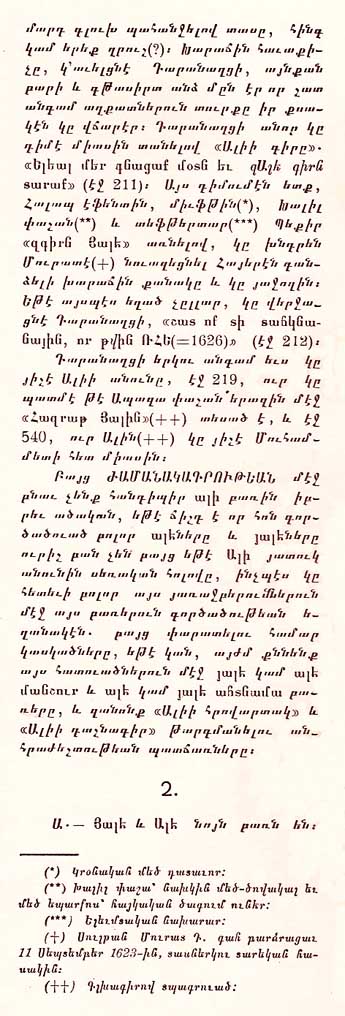 մարդ գլուխ պահանջելով տասը, հինգ
կամ երեք ղրուշ(?)։ Խարաճին հաւաքի-
չը, կ՚աւելցնէ Դարանաղցի, այնքան
բարի և գթասիրտ անձ մըն էր որ շատ
անգամ աղքատներուն տուրքը իր քսա-
կէն կը վճարէր։ Դարանաղցի անոր կը
դիմէ միասին տանելով «Ալիի գիրը».
«Ելեալ մեր գնացաք մօտն եւ զԱլէ գիրն
տարաք» (էջ 211)։ Այս դիմումէն ետք,
Հալապ էֆենտին, միւֆթին(*), Խալիլ
փաշան(**) և տեֆթերտար(***) Պեքիր
«զգիրն Յալէ» առնելով, կը խնդրեն
Մուրատէ(+) նուազեցնել Հայերէն գան-
ձելի խարաճին քանակը և կը յաջողին։
Եթէ այսպէս եղած չըլլար, կը վերջա-
ցնէ Դարանաղցի, «շատ ոք տի տաճկնա-
նային, որ թվին ՌՀԵ(=1626)» (էջ 212)։
Դարանաղցի երկու անգամ ևս կը
յիշէ Ալիի անունը, էջ 219, ուր կը
պատմէ թէ Ապազա փաշան՝ երազին մէջ
«Հազրաթ Յալին»(++) տեսած է, և էջ
540, ուր Ալին(++) կը յիշէ Մուհամ-
մետի հետ միասին։
Բայց ԺԱՄԱՆԱԿԱԳՐՈՒԹԵԱՆ մէջ
բնաւ չենք հանդիպիր ալի բառին իբ-
րեւ ածական, եթէ ճիշդ է որ հոն գոր-
ծածուած բոլոր ալեները և յալեները
ուրիշ բան չեն՝ բայց եթէ Ալի յատուկ
անունին սեռական հոլովը, ինչպէս կը
հետեւի բոլոր այս յառաջբերումներուն
մէջ այս բառերուն գործածութեան ե-
ղանակէն. բայց փարատելու համար
կասկածները, եթէ կան, այժմ քննենք
այս հատուածներուն մէջ յալէ կամ ալէ
մանշուր և ալէ կամ յալէ ահտնամա բա-
ռերը, և զանոնք «Ալիի հրովարտակ» և
«Ալիի դաշնագիր» թարգմանելու ան-
հրաժեշտութեան պատճառները։
2.
Ա.— Յալէ և Ալէ նոյն բառն են։
(*) Կրօնական մեծ դատաւոր։
(**) Խալիլ փաշա՝ նախկին մեծ-ծովակալ եւ
մեծ եպարքոս՝ հայկական ծագում ունէր։
(***) Ելեւմտական նախարար։
(+) Սուլթան Մուրատ Դ. գահ բարձրացաւ
11 Սեպտեմբեր 1623-ին, տասներկու տարեկան հա-
սակին։
(++) Գլխագիրով տպագրուած։